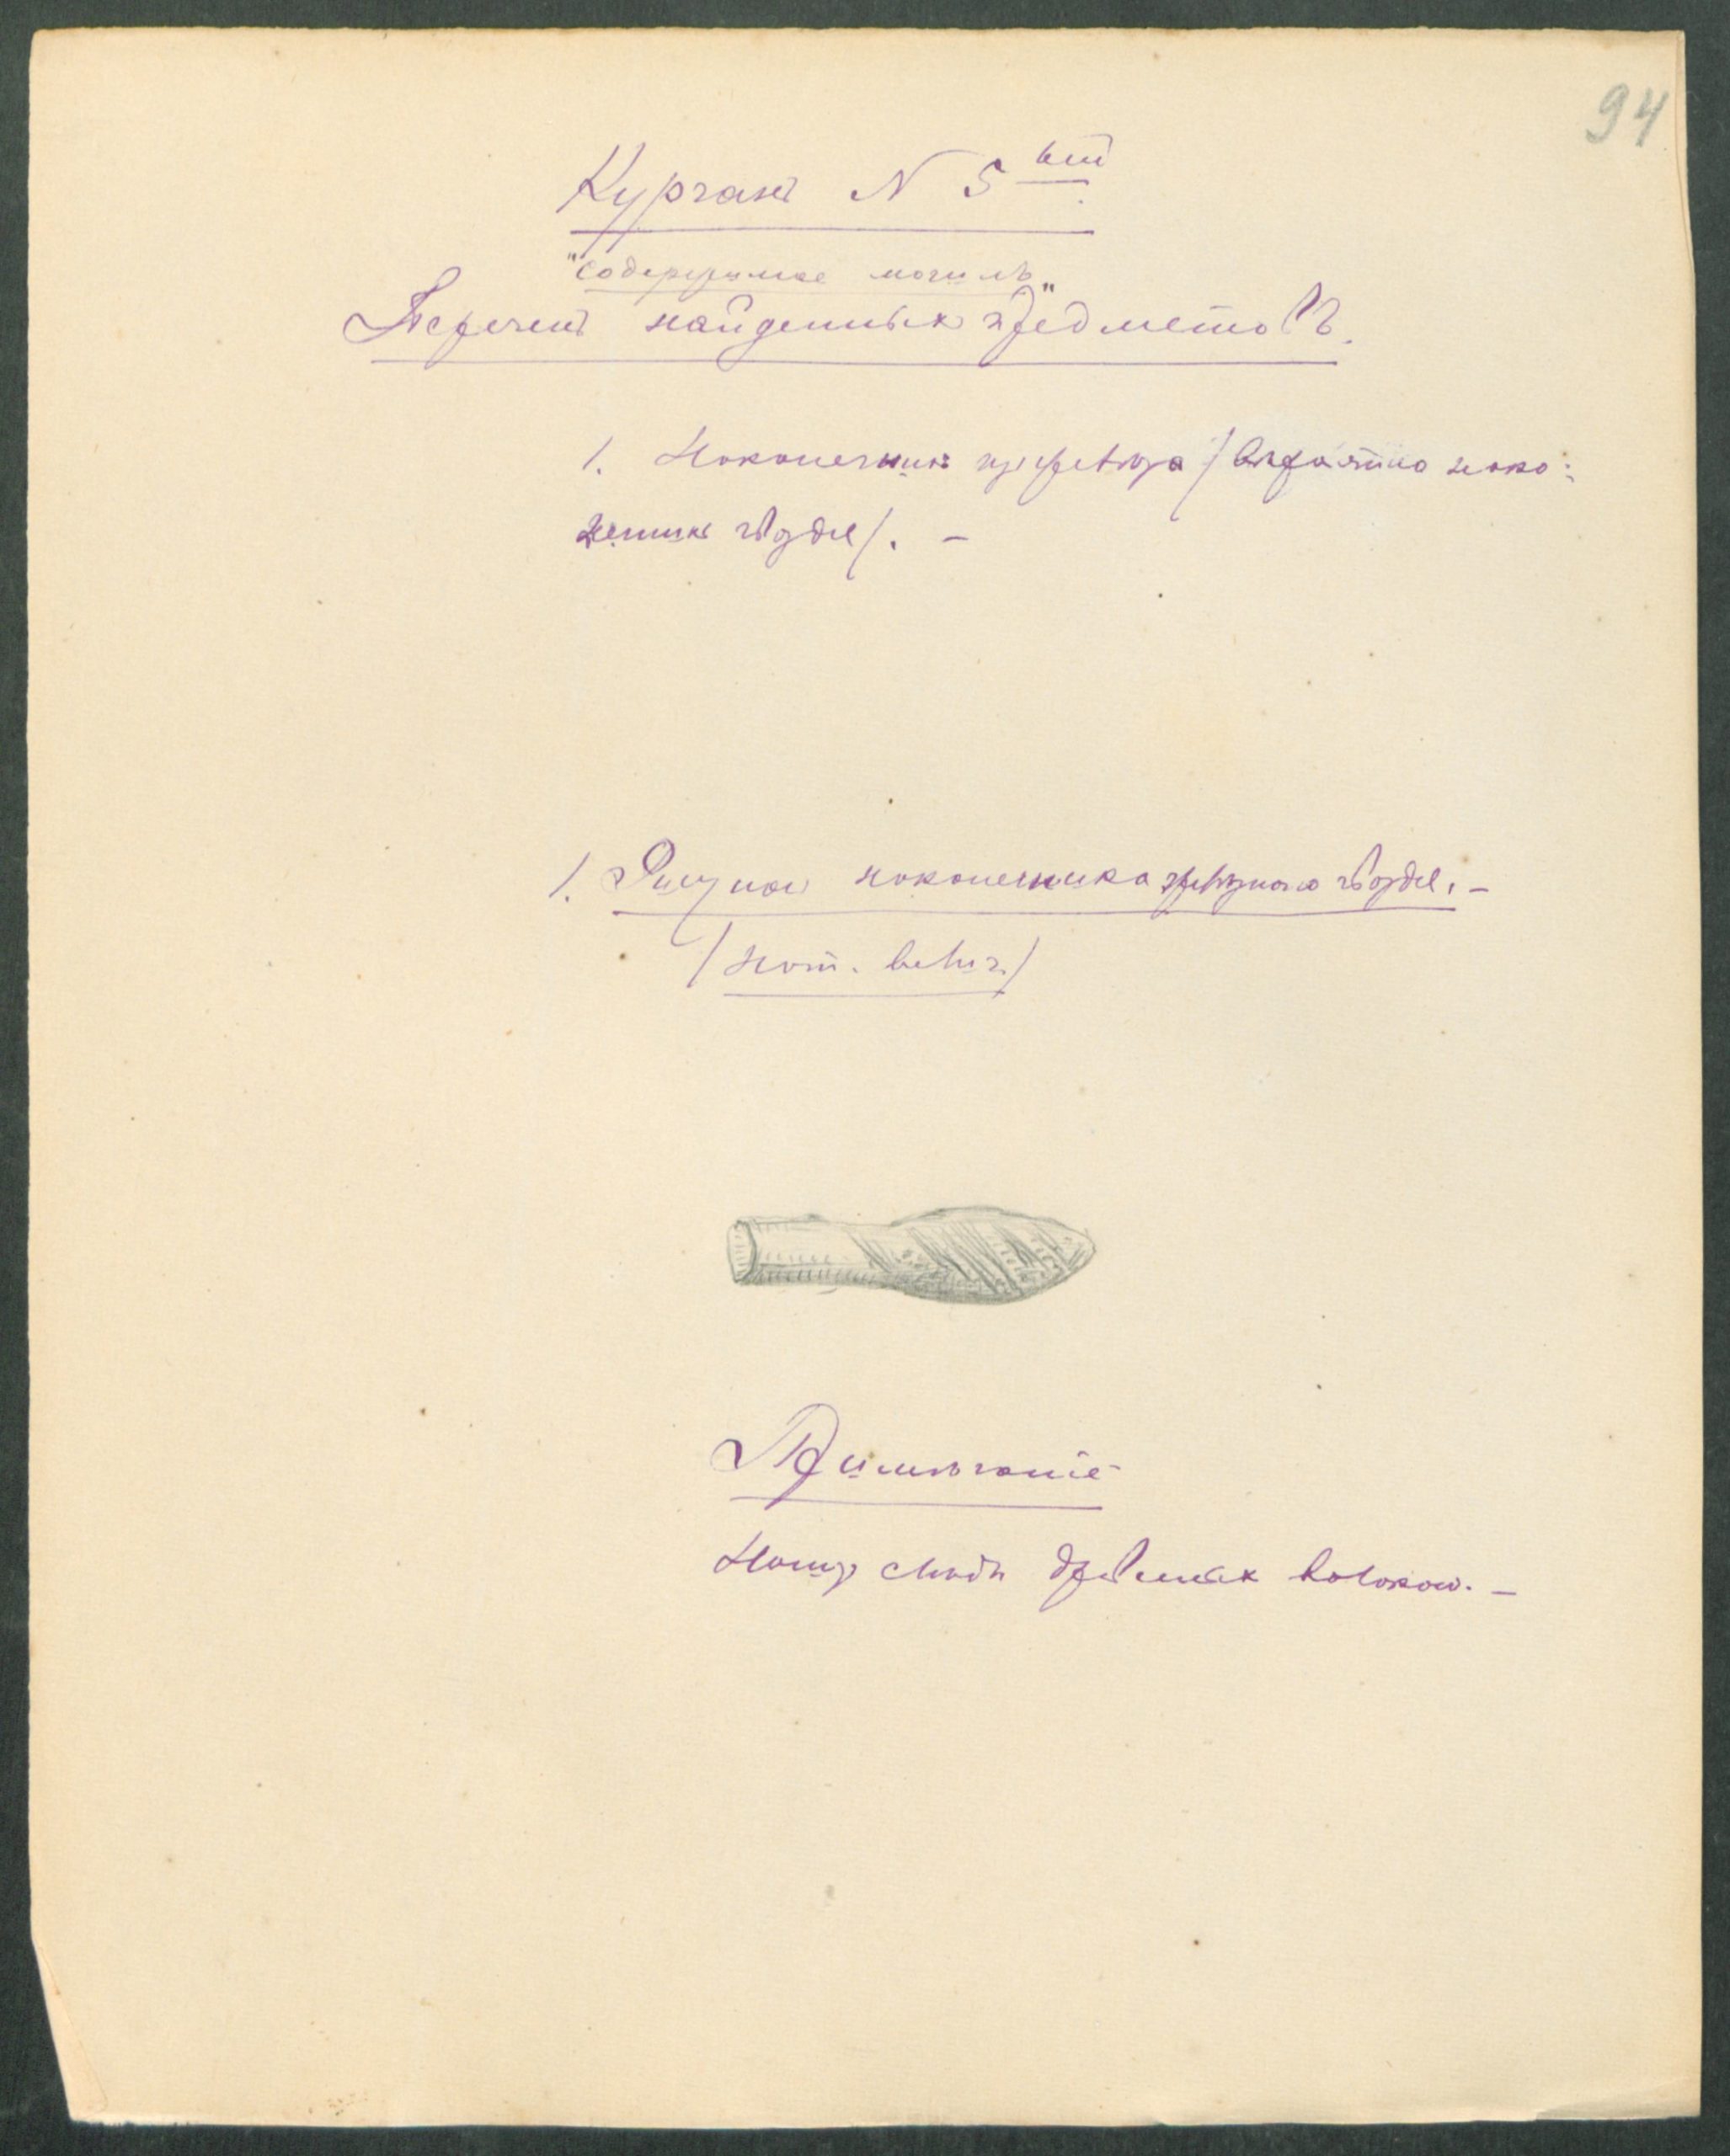 94
Курганъ N 5ый
"Содержимое могилъ"
Перечень найденныхъ предметовъ.
1. Наконечникъ изъ желѣза / вѣроятно нако=
нечникъ гвоздя /. —
1. Рисунокъ наконечника желѣзнаго гвоздя. —
/ нат. велич. /
Примѣчаніе
слѣды древесныхъ волоконъ. —